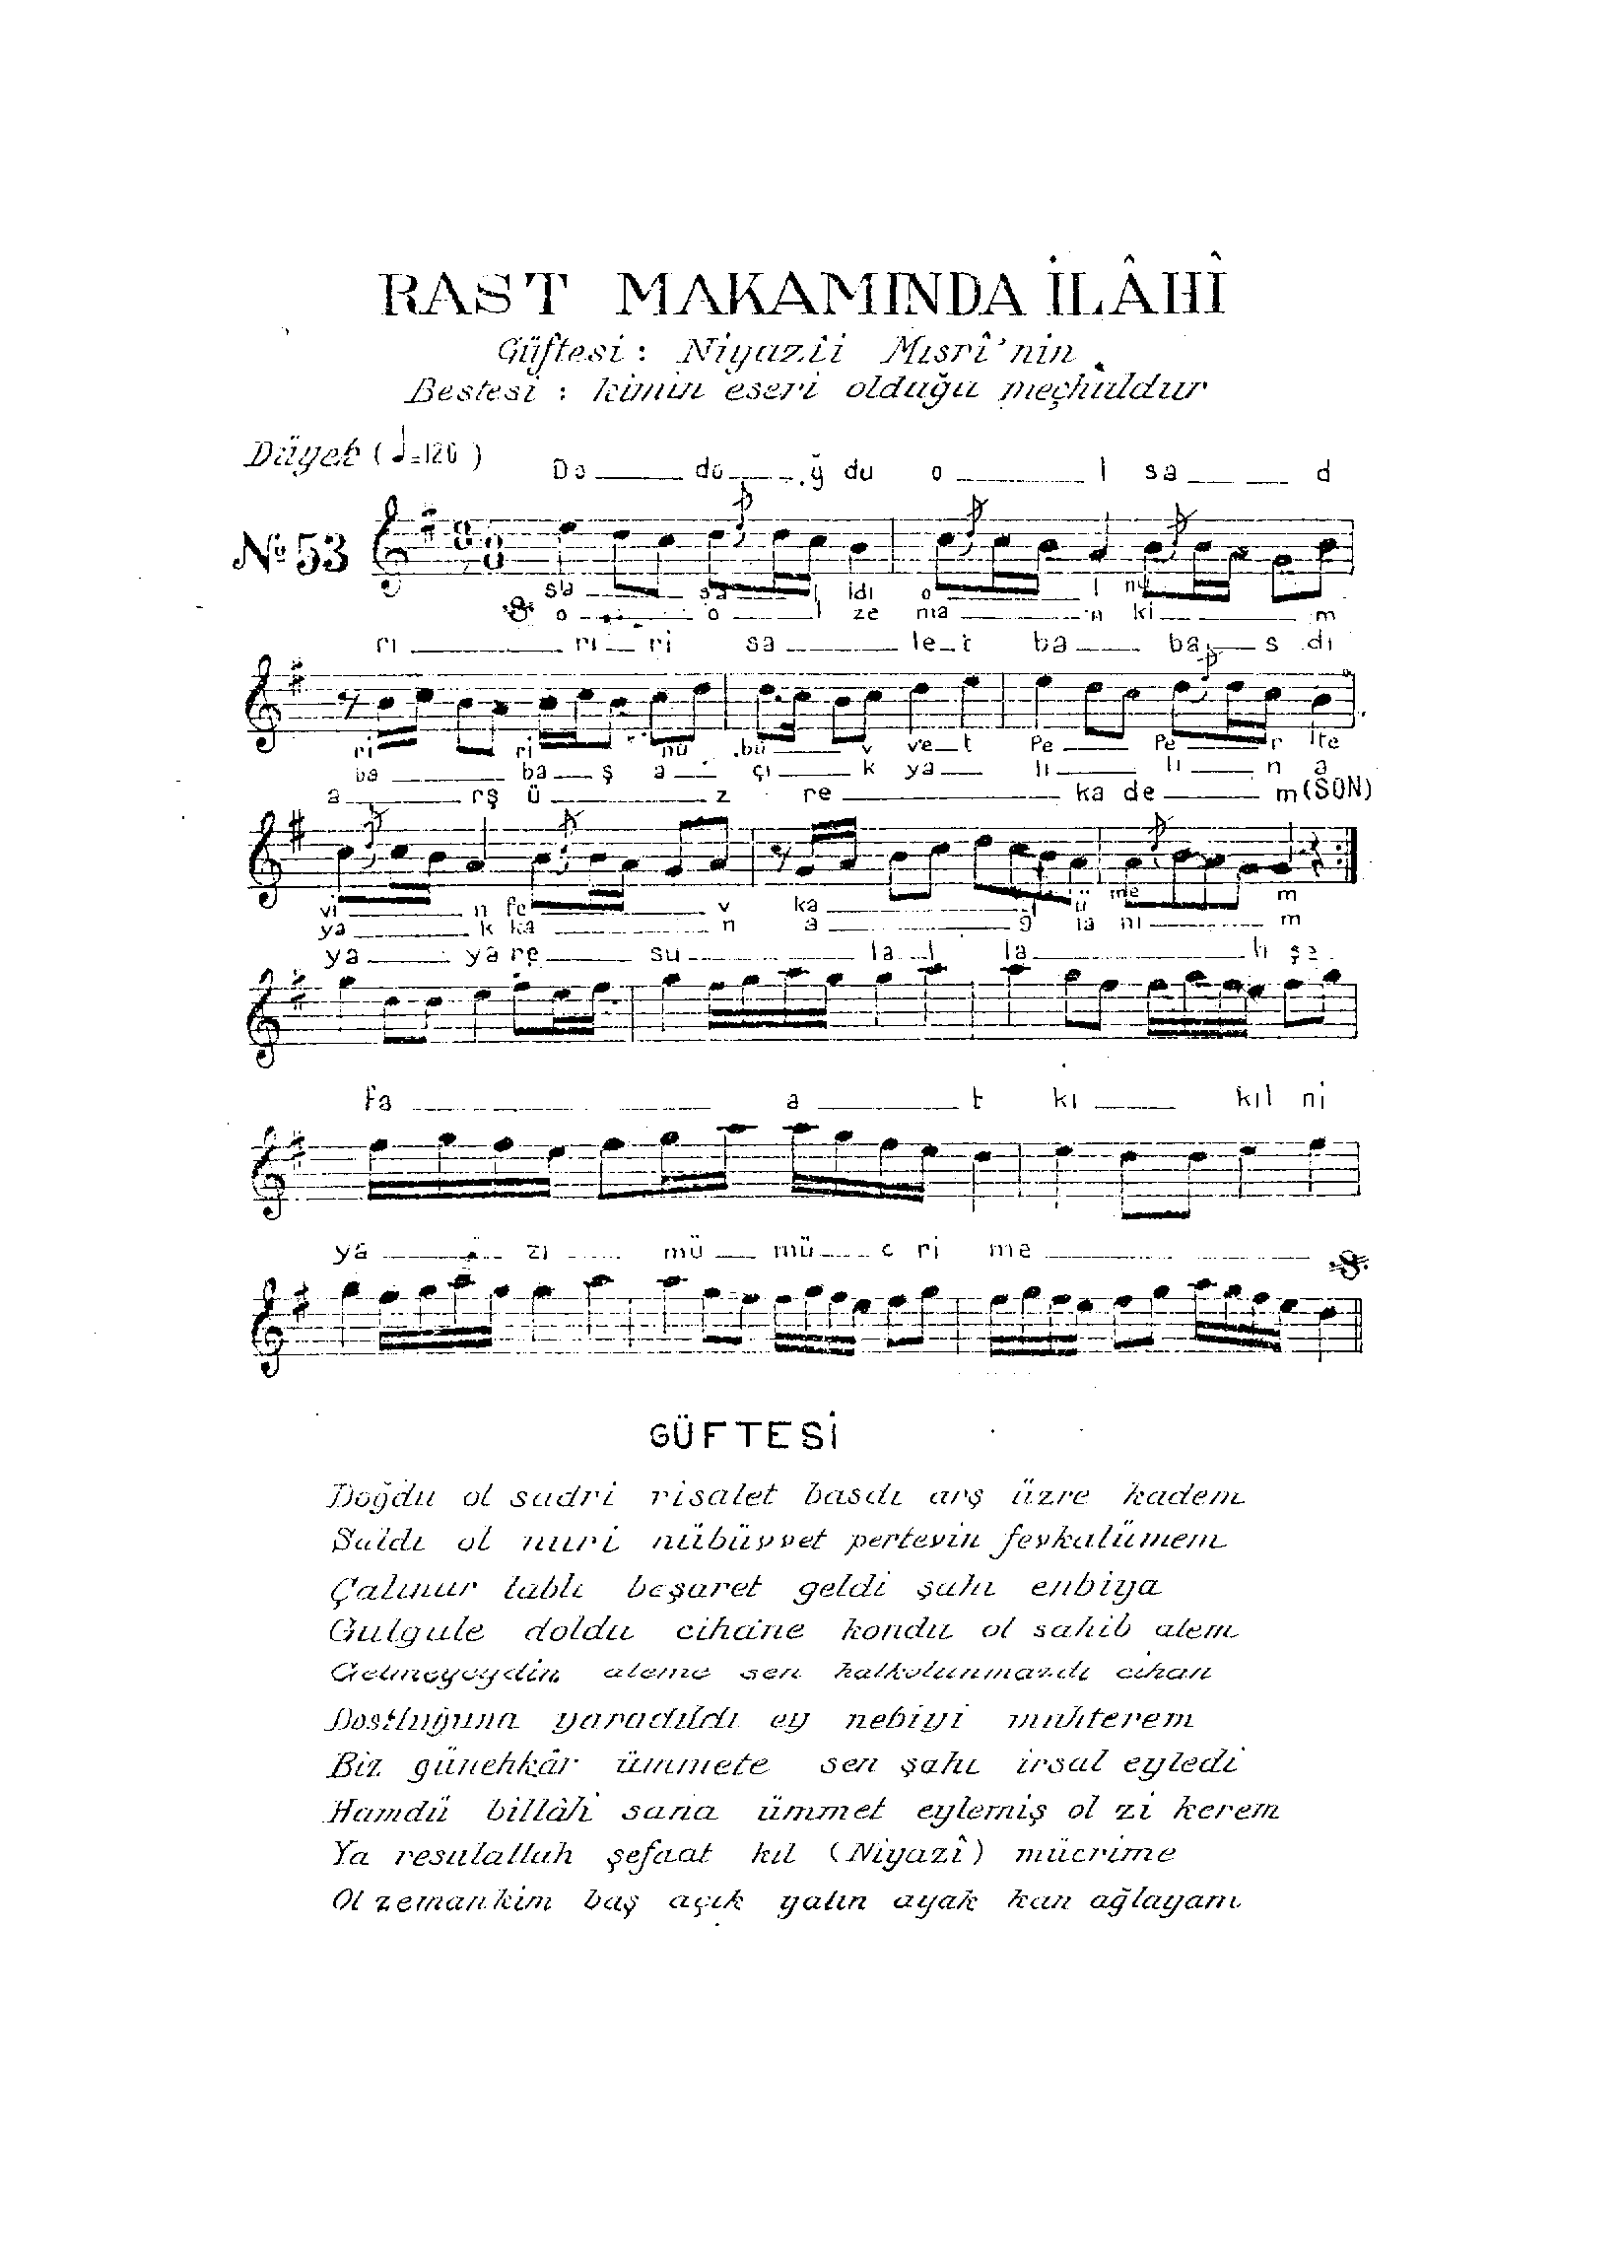 RAST MAKAMINDA İLÂHÎ
Güftesi : Niyazîi Mısrî'nin
Bestesi : kimin eseri olduğu meçhuldur
Düyek ( ♩=120 )
Do do ğ du o l sa d
No 53
sa sa l ldı o l nu
o o l ze ma n ki m
ri ri ri sa le t ba ba s dı
ri ri nü bü v ve t Pe Pe r te
ba ba ş a çı k ya lı lı n a
a rş ü z re ka de m (SON)
vi n fe v ka l ü me m
ya k ka n a ğ la nı m
ya ya re su la l la h şe
fa a t kı kıl ni
ya zi mü mü c ri me
GÜFTESİ
Doğdu ol sadri risalet basdı arş üzre kadem
Saldı ol nuri nübüvvet pertevin fevkalümem
Çalınur tablı beşaret geldi şahı enbiya
Gulgule doldu cihane kondu ol sahib alem
Gelmeyeydin aleme sen halkolunmazdı cihan
Dostluğuna yaradıldı ey nebiyi muhterem
Biz günehkâr ümmete sen şahı irsal eyledi
Hamdü billâhi sana ümmet eylemiş ol zi kerem
Ya resulallah şefaat kıl (Niyazî) mücrime
Ol zeman kim baş açık yalın ayak kan ağlayanı